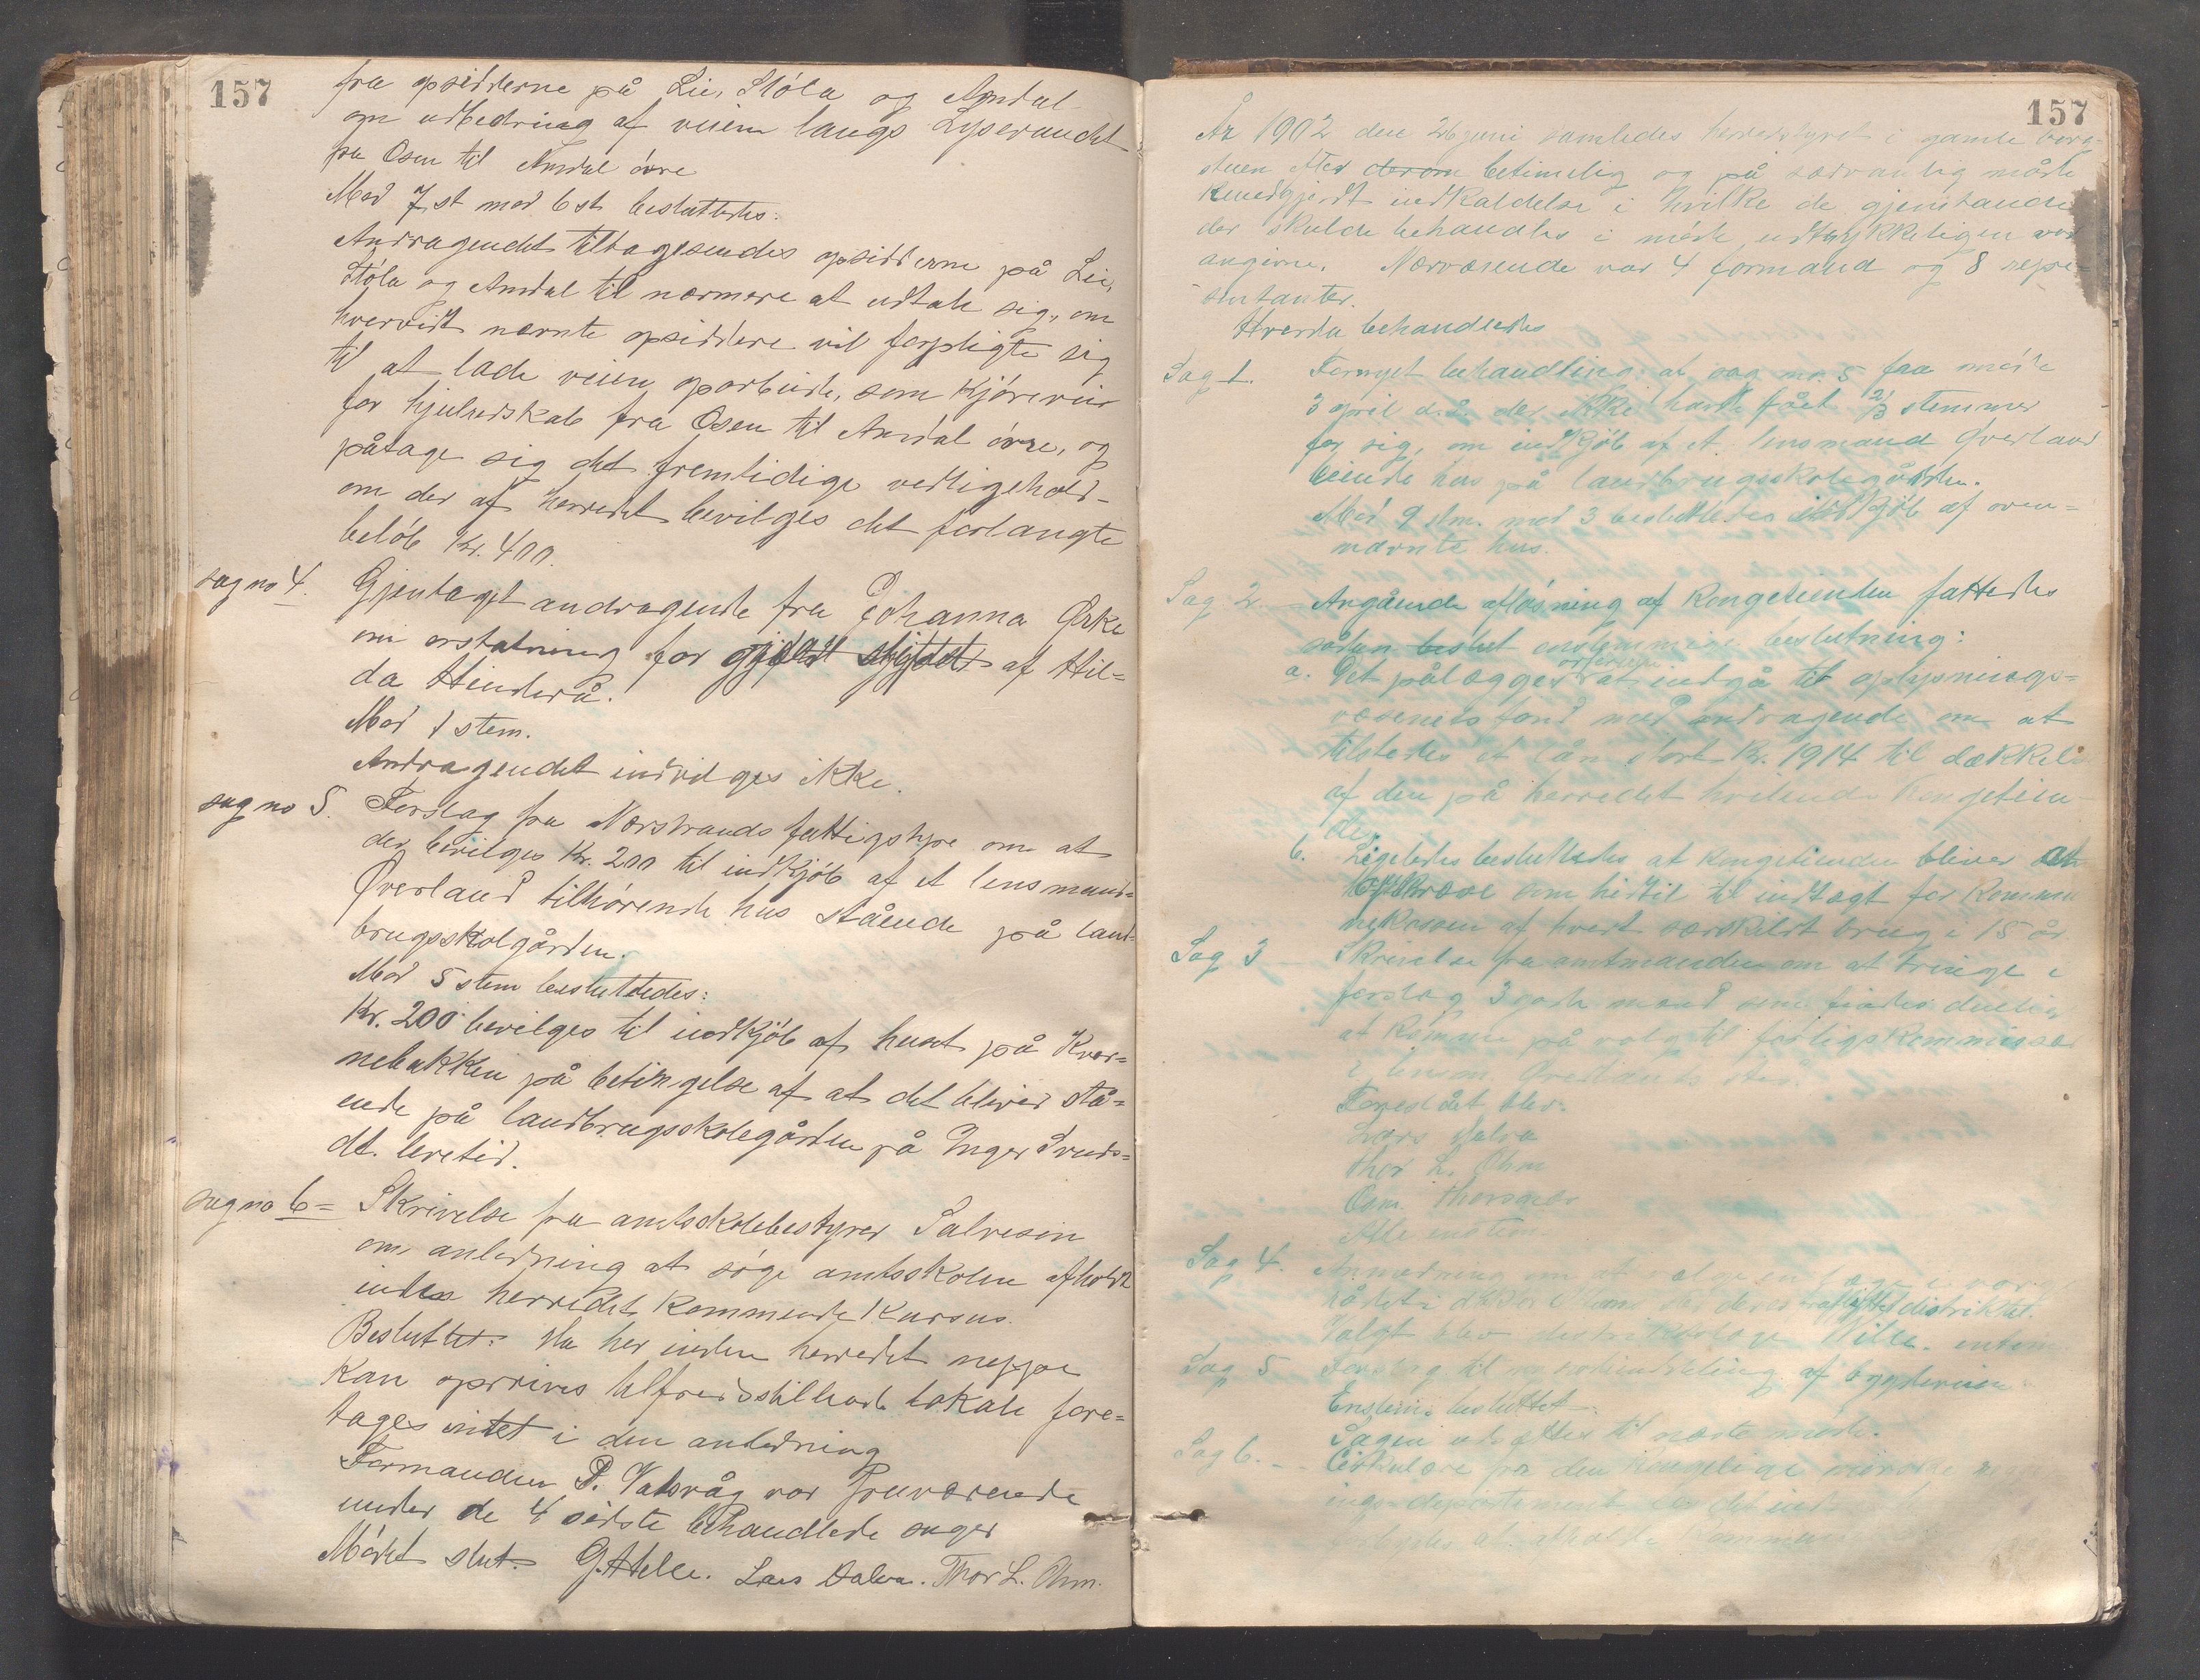 157
fra opsidderne på Lie, Støla og Amdal
om udbedring af veien langs Lysevandet
fra Osen til Amdal øvre
Mod 7 st mod 6 st besluttedes:
Andragendet tilbagesendes opsidderne på Lie,
Støla og Amdal til nærmere at udtale sig, om
hvorvidt nævnte opsiddere vil forpligte sig
til at lade veien oparbeide, som kjørevei
for hjulredskab fra Osen til Amdal øvre, og
påtage sig det fremtidige vedligehold-
om der af herredet bevilges det forlangte
beløb Kr. 400.
sag no 4. Gjentaget andragende fra Johanna Ørke
om erstatning for af Hil=
da Hinderå.
Mod 1 stem.
Andragendet indvilges ikke.
sag no 5. Forslag fra Nærstrands fattigstyre om at
der bevilges Kr. 200 til indkjøb af et lensmand=
Øverland tilhørende hus stående på land=
brugsskolgården.
Mod 5 stem besluttedes:
Kr. 200 bevilges til indkjøb af huset på Kvær=
nebakken på betingelse af at det bliver stå=
ende på landbrugsskolegården på Inger
dt. levetid.
sag no 6= Skrivelse fra amtsskolebestyrer Salvesen
om anledning at søge amtsskolen afholdt
inden herredet kommende kursus.
Besluttet: Da her inden herredet neppe
kan opdrives tilfredsstillende lokale fore=
tages intet i den anledning
Formanden P. Vatsvåg var fraværende
under de 4 sidste behandlede sager
Mødet slut. G. Helle. Lars Dalva. Thor L. Ohm.
157
År 1902 den 26 juni samledes herredstyret i gamle
stuen efter derom betimelig og på sædvanlig måde
kundgjordt indkaldelse i hvilke de gjenstande
der skulde behandles i møde udtrykkeligen var
angivne. Nærværende var 4 formænd og 8 repræ-
sentanter.
Hvorda behandledes
Sag 1. Fornyet behandling af sag no. 5 fra møde
3 april d.å. der ikke havde fået 2/3 stemmer
for sig, om indkjøb af et lensmand Øverland
eiende hus på landbrugsskolegården.
Mod 9 stm. mod 3 besluttedes indkjøb af oven=
nævnte hus.
Sag 2. Angående afløsning af Kongetienden fattedes
sådan beslut enstemmige beslutning:
a. Det pålægges ordføreren at indgå til oplysnings=
væsenets fond med andragende om at
tilstedes et lån stort Kr. 1914 til dækkels
af den på herredet hvilende Kongetien-
de.
b. Ligeledes besluttedes at kongetienden bliver at
opkræve som hidtil til indtægt for Kommu
nekassen af hvert særskildt brug i 15 år.
Sag 3 Skrivelse fra amtmanden om at bringe i
forslag 3 gode mænd som findes duelig
at komme på valg til forligskommissær
i lensm. Øverlands sted.
Foreslået blev:
Lars Dalva
Thor L. Ohm
Osm. Thorsager
Alle
Sag 4. Anmodning om at vælge en læge i
rådet i
Valgt blev distriktslæge
Sag 5 Forslag til af bygdeveien
Enstem. besluttet:
Sagen udsættes til næste møde.
Sag 6. - Cirkulære fra den kongelige norske
ings-departement